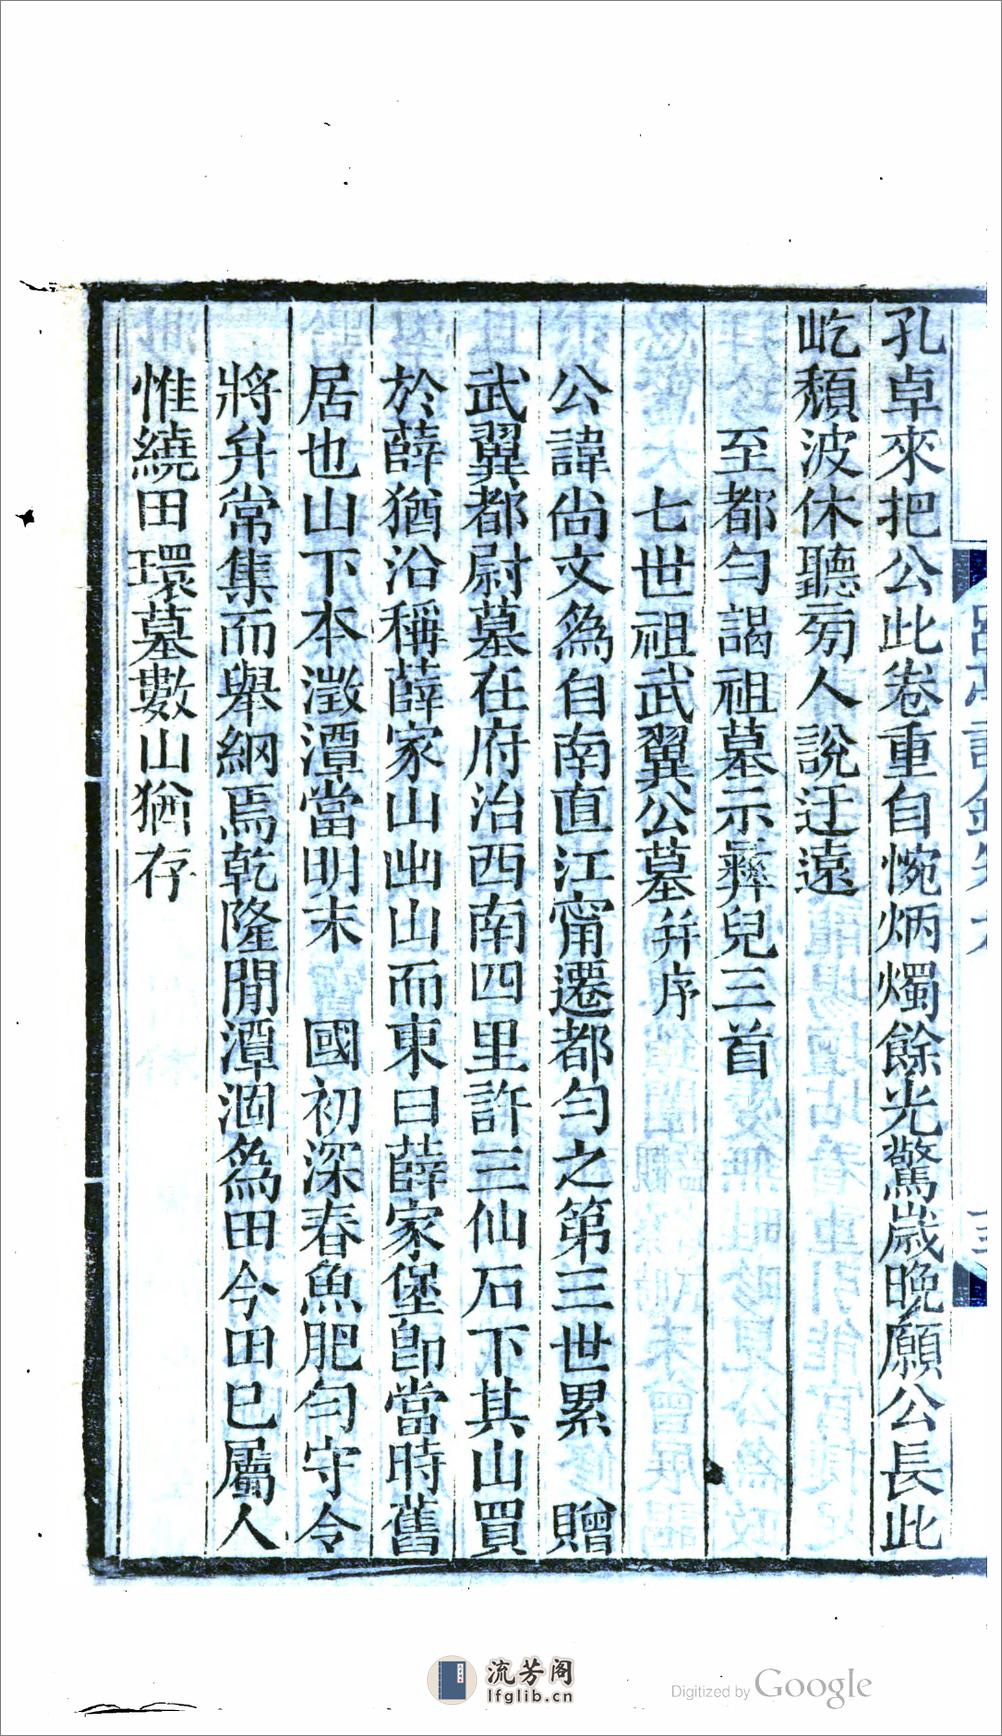 孔卓來把公此卷重自惋炳燭餘光驚歲晚願公長此
屹頹波休聽旁人說迂遠
至都勻謁祖墓示彝兒三首
七世祖武翼公墓并序
公諱尙文爲自南直江甯遷都勻之第三世累　贈
武翼都尉墓在府治西南四里許三仙石下其山買
於薛猶沿稱薛家山出山而東曰薛家堡卽當時舊
居也山下本澂潭當明末　國初深春魚肥勻守令
將弁常集而舉網焉乾隆閒潭涸爲田今田已屬人
惟繞田環墓數山猶存
流芳阁
lfglib.cn
Digitized by Google